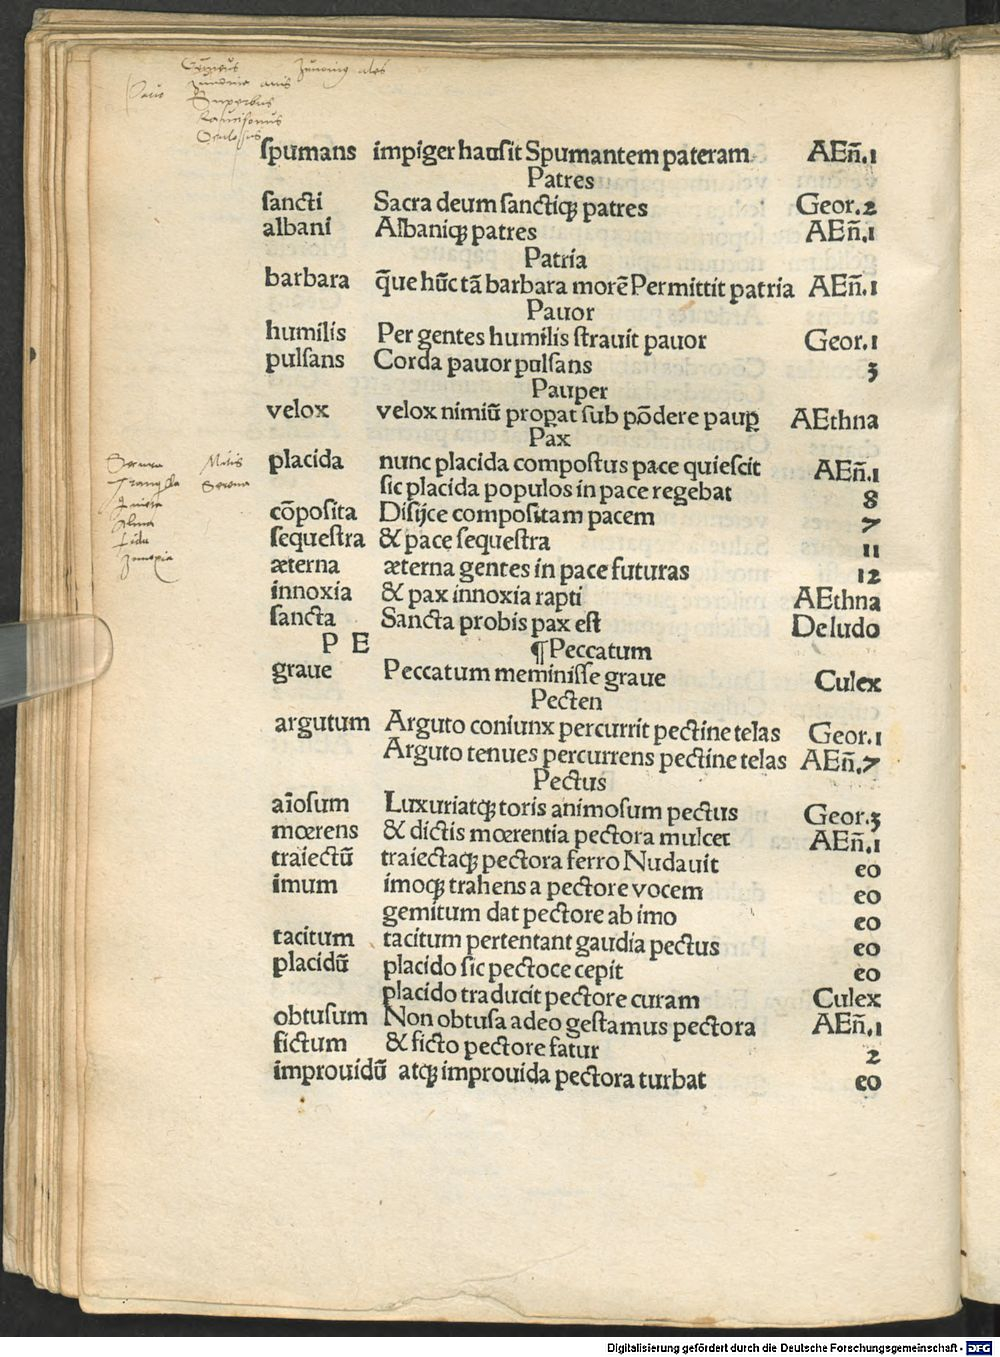 Superbus
spumans impiger hausit Spumantem pateram AEñ.1
Patres
sancti Sacra deum sanctiqꝫ patres Geor.2
albani Albaniqꝫ patres AEñ.1
Patria
barbara q̄ue hūc tā barbara morē Permittit patria AEñ.1
Pauor
humilis Per gentes humilis strauit pauor Geor.1
pulsans Corda pauor pulsans 3
Pauper
velox velox nimiū proꝑat sub pōdere pauꝑ AEthna
Pax
Mitis placida nunc placida compostus pace quiescit AEñ.1
Serena sic placida populos in pace regebat 8
cōposita Disijce compositam pacem 7
Alma sequestra & pace sequestra 11
æterna æterna gentes in pace futuras 12
innoxia & pax innoxia rapti AEthna
sancta Sancta probis pax est Deludo
P E ¶Peccatum
graue Peccatum meminisse graue Culex
Pecten
argutum Arguto coniunx percurrit pectine telas Geor.1
Arguto tenues percurrens pectine telas AEñ.7
Pectus
aīosum Luxuriatqꝫ toris animosum pectus Geor.3
mœrens & dictis mœrentia pectora mulcet AEñ.1
traiectū traiectaqꝫ pectora ferro Nudauit eo
imum imoqꝫ trahens a pectore vocem eo
gemitum dat pectore ab imo eo
tacitum tacitum pertentant gaudia pectus eo
placidū placido sic pectoce cepit eo
placido traducit pectore curam Culex
obtusum Non obtusa adeo gestamus pectora AEñ.1
fictum & ficto pectore fatur 2
improuidū atqꝫ improuida pectora turbat eo
Digitalisierung gefördert durch die Deutsche Forschungsgemeinschaft - DFG